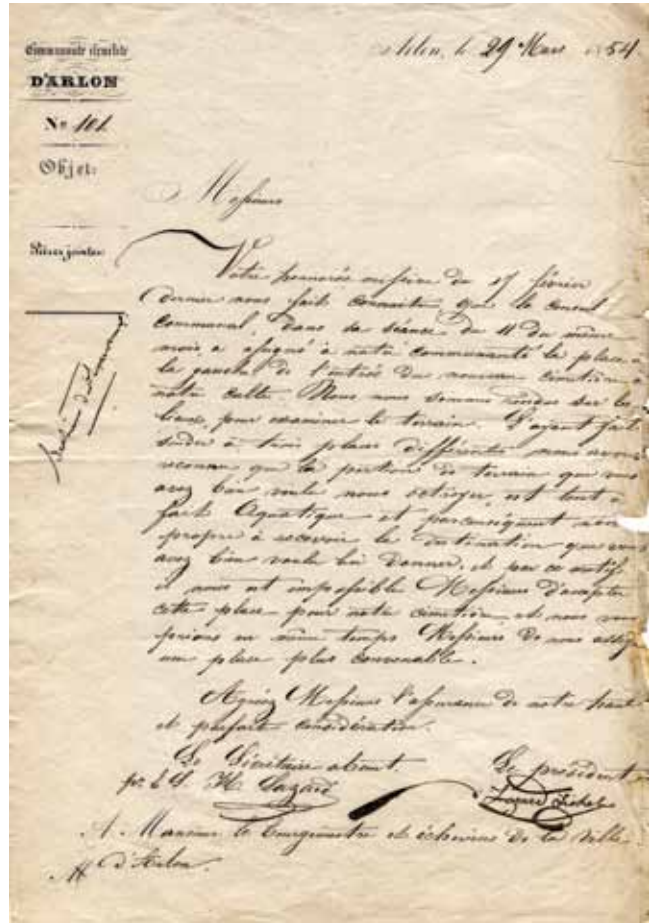 Communauté israélite
D'ARLON
Nº 101
Objet:
Pièces jointes
Arlon, le 29 Mars 1854
Messieurs
Votre honorée missive du 17 février
dernier nous fait connaitre que le conseil
communal, dans sa séance du 11 du même
mois, a assigné à notre communauté la place à
la gauche de l'entrée du nouveau cimetière à
notre culte. Nous nous sommes rendus sur les
lieux, pour examiner le terrain. L'ayant fait
sonder à trois places différentes nous avons
reconnu que la portion de terrain que vous
avez bien voulu nous octroyer, est tout à
fait aquatique et par conséquent non
propre à recevoir la destination que vous
avez bien voulu lui donner, et par ce motif
il nous est impossible Messieurs d'accepter
cette place pour notre cimetière, et nous vous
prions en même temps Messieurs de nous assigner
une place plus convenable.
Agréez Messieurs l'assurance de notre haute
et parfaite considération.
Le Secrétaire absent. Le président
H. Lazard
A Messieurs le bourgmestre et échevins de la ville
d'Arlon.